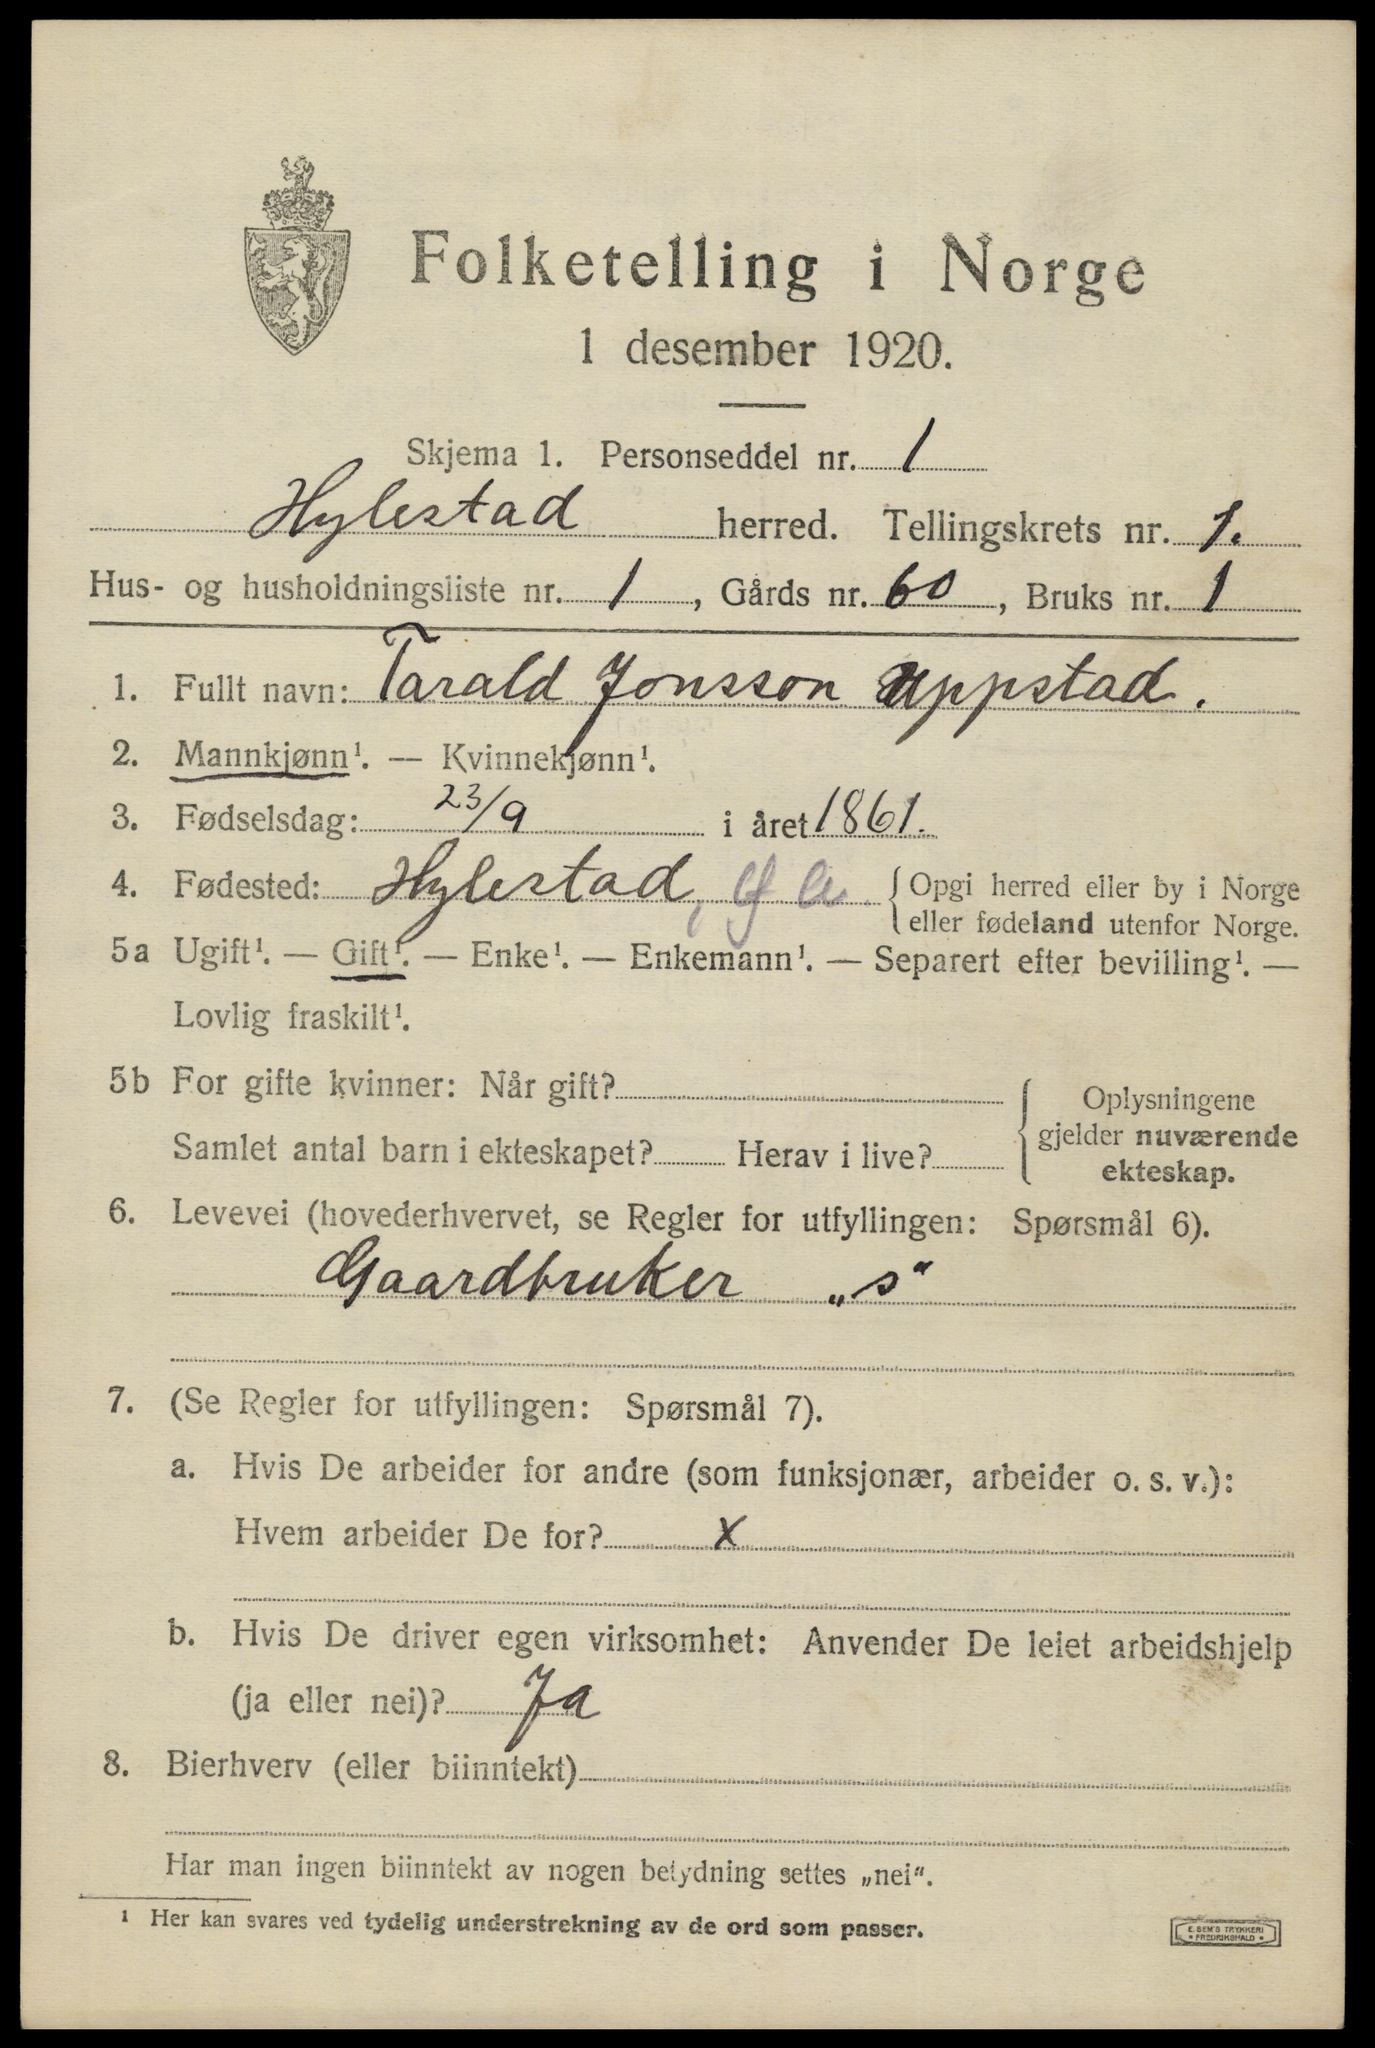 Folketelling i Norge
1 desember 1920.
Skjema 1. Personseddel nr. 1
Hylestad herred. Tellingskrets nr. 1.
Hus- og husholdningsliste nr. 1, Gårds nr. 60, Bruks nr. 1
1. Fullt navn: Tarald Jonsson Uppstad.
2. Mannkjønn¹. — Kvinnekjønn¹.
3. Fødselsdag: 23/9 i året 1861.
4. Fødested: Hylestad, {Opgi herred eller by i Norge
eller fødeland utenfor Norge.
5a Ugift¹. — Gift¹. — Enke¹. — Enkemann¹. — Separert efter bevilling¹. —
Lovlig fraskilt¹.
5b For gifte kvinner: Når gift?
Samlet antal barn i ekteskapet? Herav i live?
Oplysningene
gjelder nuværende
ekteskap.
6. Levevei (hovederhvervet, se Regler for utfyllingen: Spørsmål 6).
Gaardbruker „s“
7. (Se Regler for utfyllingen: Spørsmål 7).
a. Hvis De arbeider for andre (som funksjonær, arbeider o. s. v.):
Hvem arbeider De for? X
b. Hvis De driver egen virksomhet: Anvender De leiet arbeidshjelp
(ja eller nei)? Ja
8. Bierhverv (eller biinntekt)
Har man ingen biinntekt av nogen betydning settes „nei“.
¹ Her kan svares ved tydelig understrekning av de ord som passer.
E. SEM'S TRYKKERI
• FREDRIKSHALD •